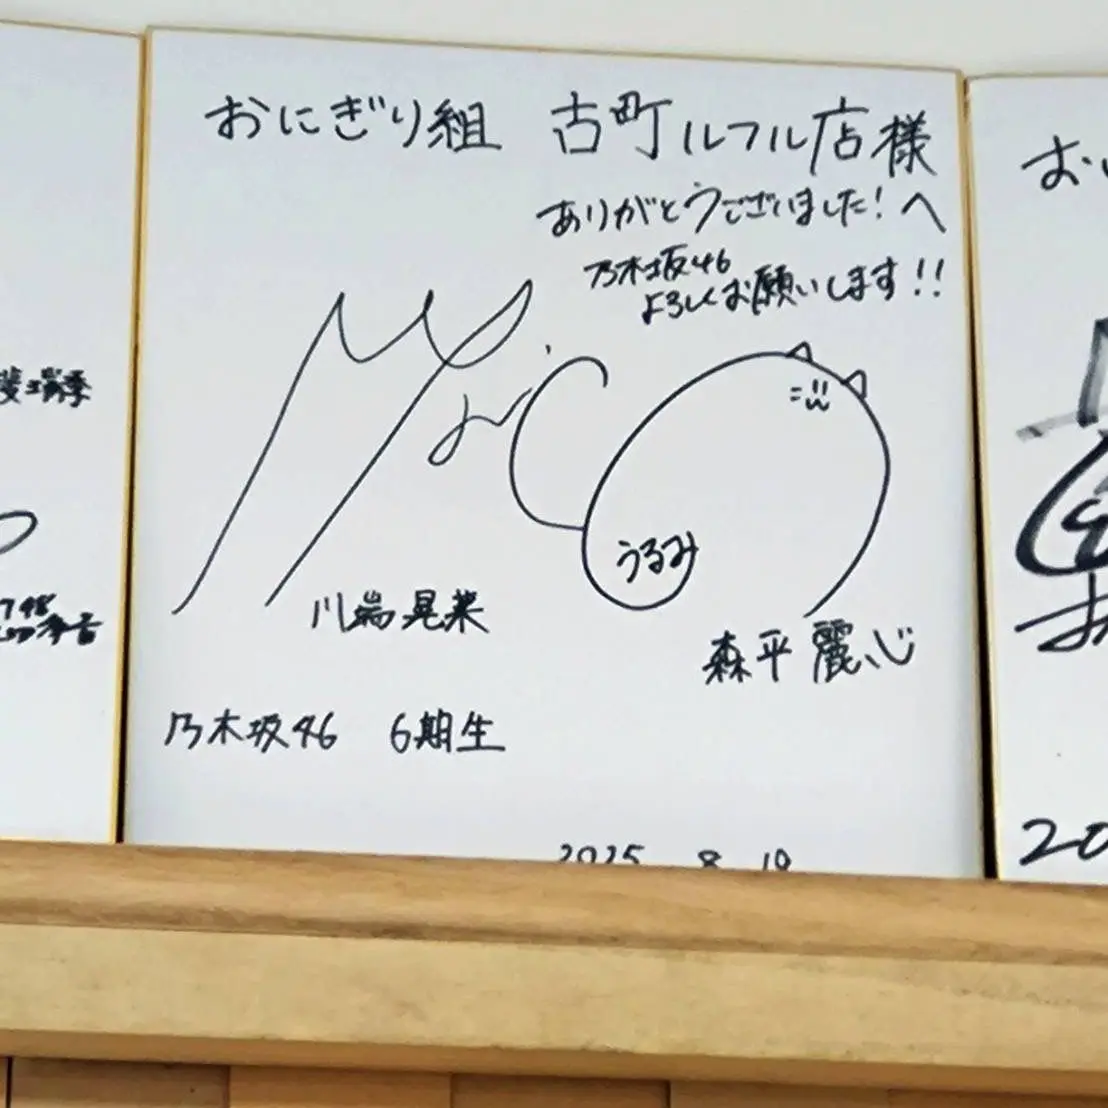 おにぎり組 古町ルフル店様へ
ありがとうございました!
乃木坂46
よろしくお願いします!!
うるみ
川端晃菜
森平麗心
乃木坂46 6期生
2025 8 19
お
20